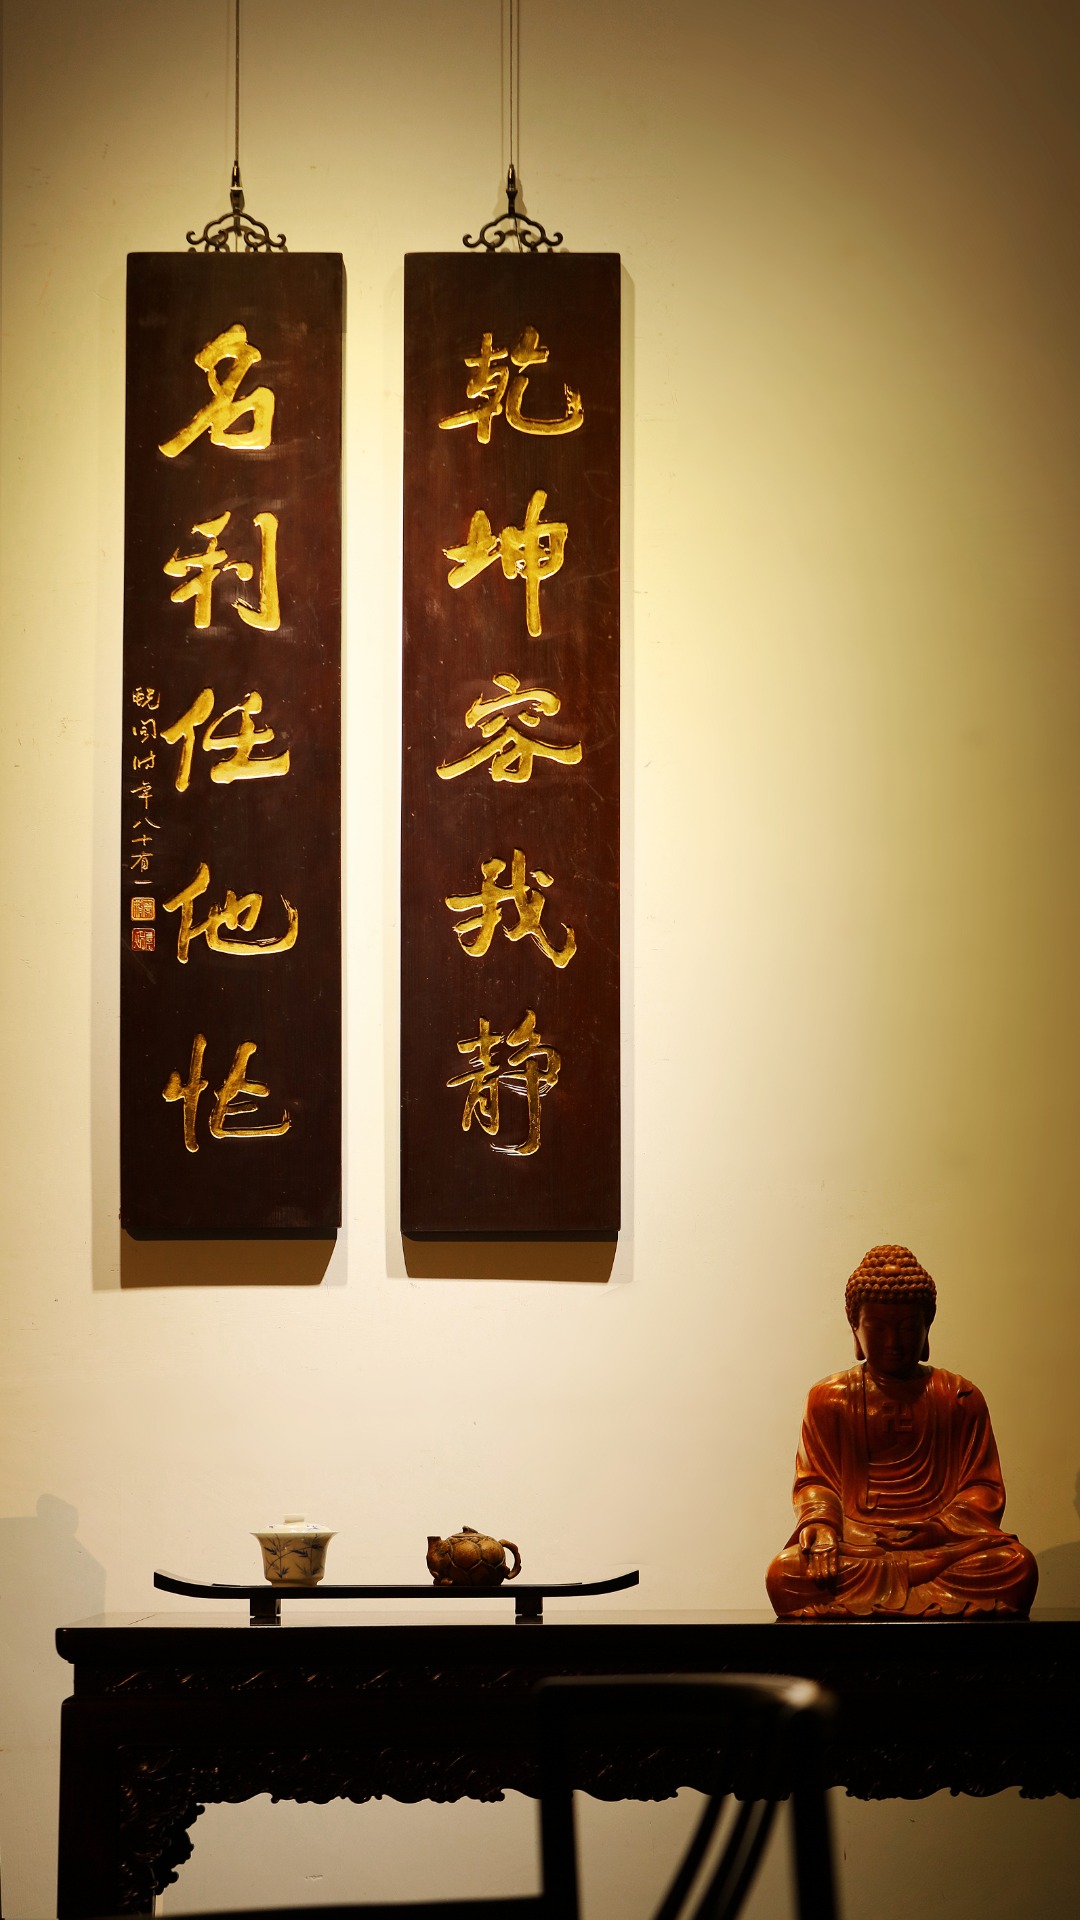 乾坤容我静
名利任他忙
时年八十有一